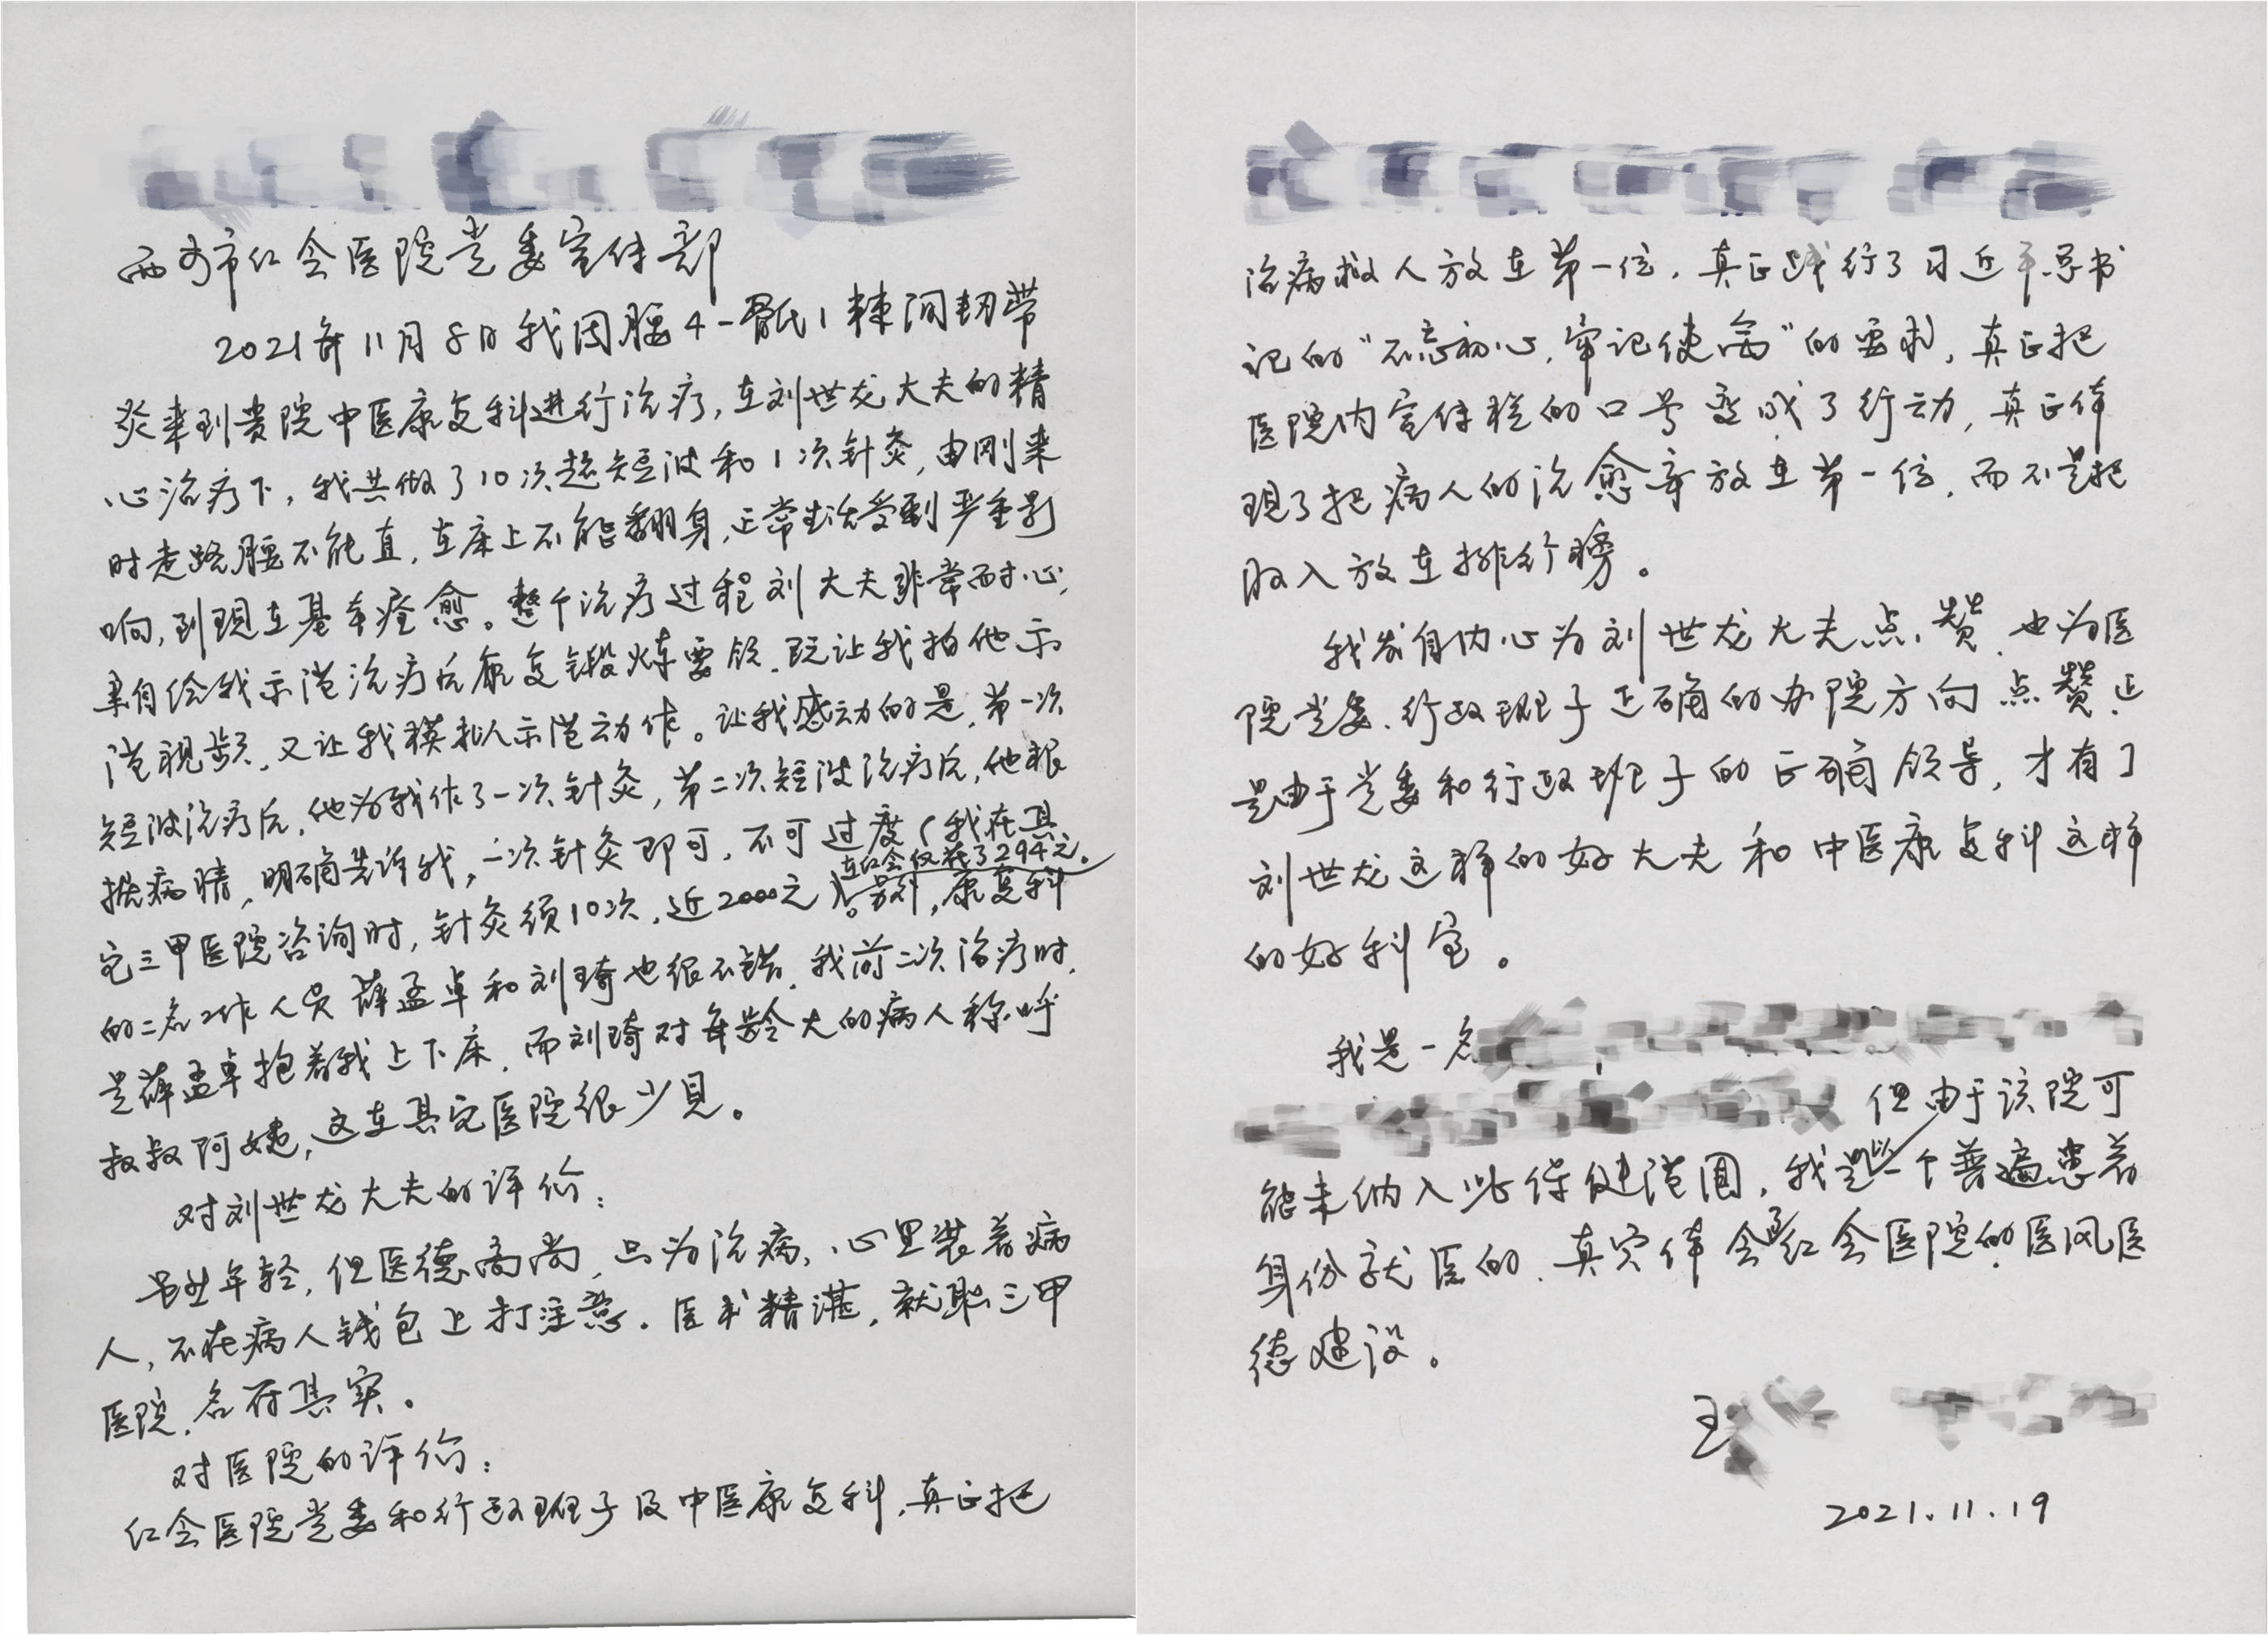 西安市红会医院党委宣传部
2021年11月8日我因腰4－骶1棘间韧带
炎来到贵院中医康复科进行治疗，在刘世龙大夫的精
心治疗下，我共做了10次超短波和1次针灸，由刚来
时走路腰不能直，在床上不能翻身，正常生活受到严重影
响，到现在基本痊愈。整个治疗过程刘大夫非常耐心，
亲自给我示范治疗后康复锻炼要领，既让我拍他示
范视频，又让我模拟示范动作。让我感动的是，第一次
短波治疗后，他为我作了一次针灸，第二次短波治疗后，他根
据病情，明确告诉我，一次针灸即可，不可过度（我在其
它三甲医院咨询时，针灸须10次，近2000元
在红会仅花了294元。
）。另外，康复科
的二名工作人员薛孟卓和刘琦也很不错，我前二次治疗时，
是薛孟卓抱着我上下床，而刘琦对年龄大的病人称呼
叔叔阿姨，这在其它医院很少见。
对刘世龙大夫的评价：
虽然年轻，但医德高尚，只为治病，心里装着病
人，不在病人钱包上打注意。医术精湛，就职三甲
医院，名符其实。
对医院的评价：
红会医院党委和行政班子及中医康复科，真正把
治病救人放在第一位，真正践行了习近平总书
记的“不忘初心，牢记使命”的要求，真正把
医院内宣传栏的口号变成了行动，真正体
现了把病人的治愈率放在第一位，而不是把
收入放在排行榜。
我发自内心为刘世龙大夫点赞，也为医
院党委、行政班子正确的办院方向点赞，正
是由于党委和行政班子的正确领导，才有了
刘世龙这样的好大夫和中医康复科这样
的好科室。
我是一名
但由于该院可
能未纳入此保健范围，我是以一个普遍患者
身份就医的，真实体会了红会医院的医风医
德建设。
王
2021.11.19